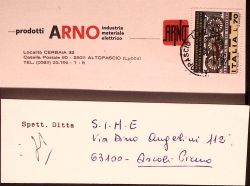 prodotti ARNO industria materiale elettrico
ARNO
ITALIA L.70
Località CERBAIA 32
Casella Postale 50 - 55011 ALTOPASCIO (Lucca)
TEL. (0583) 25.194 - 7 - 8
Spett. Ditta
S.I.H.E
Via Dino Angelini 112
63100 - Ascoli Piceno